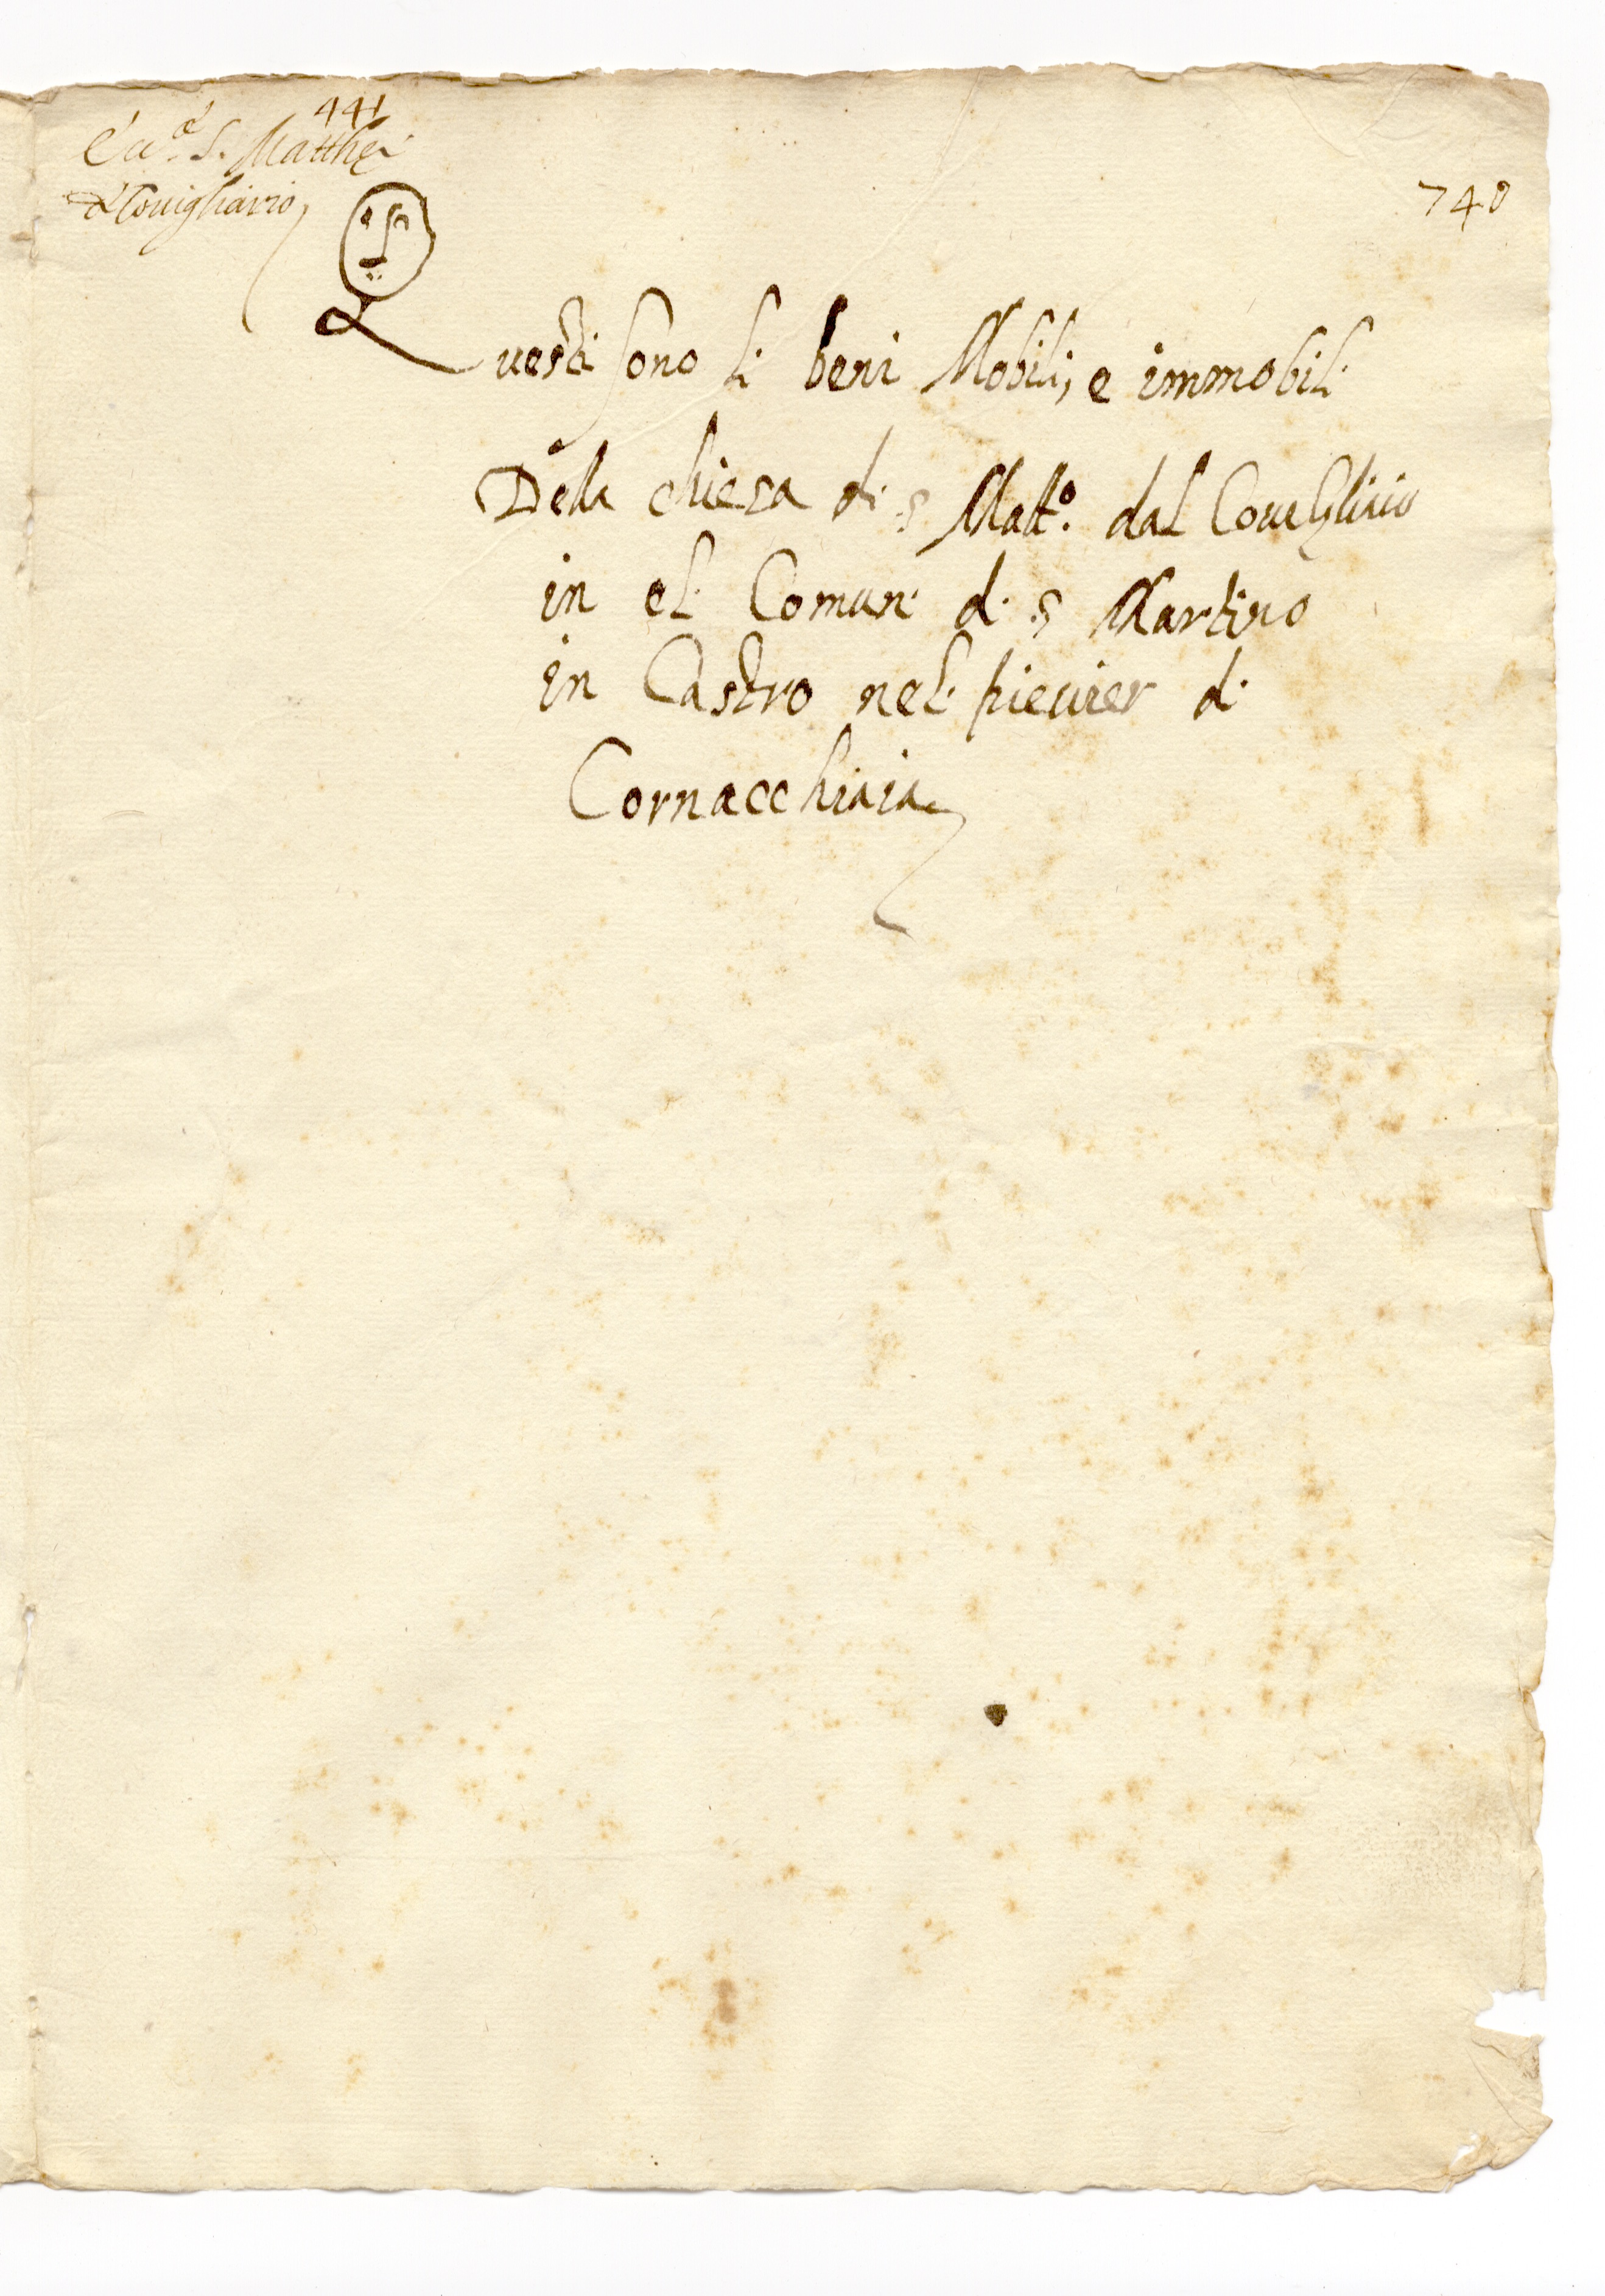 441
Ecc.ª S. Matthei
d Covigliario
740
Questi sono li beni Mobili, e immobili
Della chiesa di s Matt.º dal Covigliaio
in el Comun di s Martino
in Castro nel pievier di
Cornacchiaia